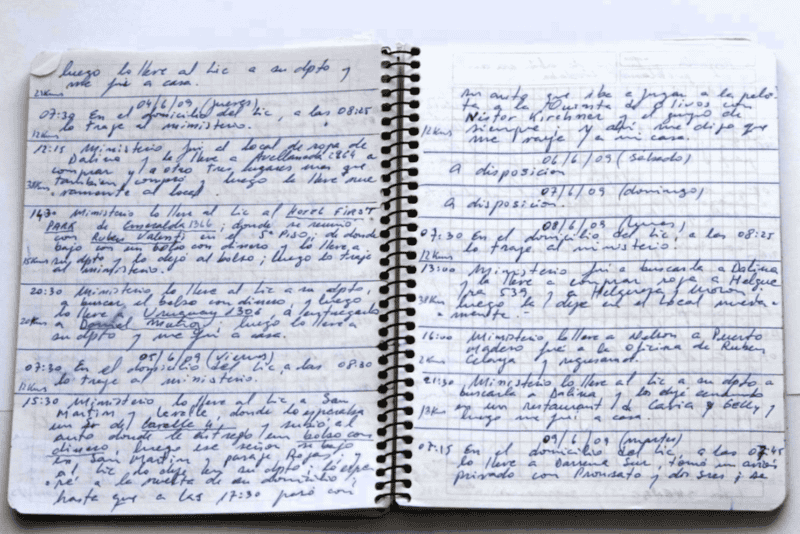 luego lo lleve al Lic a su dpto y
me fui a casa.
04/6/09 (jueves)
07:30 En el domicilio del Lic, a las 08:25
lo traje al ministerio.
12Kms
12:15 Ministerio fui al local de ropa de
Dalina y la lleve a Avellaneda a
comprar y a otro tres lugares mas que
tambien compró luego la lleve nue
vamente al local.
14:30 Ministerio lo lleve al Lic al Hotel FIRST
PARK de Esmeralda 1366; donde se reunió
con Ruben Valenti en el 5º Piso; de donde
bajo con un bolso con dinero y lo lleve a
15Kms su dpto y lo dejó al bolso; luego lo traje
al ministerio.
20:30 Ministerio lo lleve al Lic a su dpto,
a buscar el bolso con dinero, y luego
lo lleve a Uruguay 1306 a entregarlo
a Daniel Muñoz, luego lo lleve a
su dpto y me fui a casa.
05/6/09 (viernes)
07:30 En el domicilio del Lic a las 08:30
lo traje al ministerio.
15:30 Ministerio lo lleve al Lic a San
Martin y Lavalle, donde lo esperaba
un Sr de Lavalle y subió al
auto donde le entrego un bolso con
dinero, luego ese señor se bajo
en San Martin y pasaje Rojas; y
al Lic lo deje en su dpto; lo espe
ré a la vuelta de su domicilio
hasta que a las 17:30 paró con
su auto que iba a jugar a la pelo
ta a la Quinta de Olivos con
Néstor Kirchner y el grupo de
siempre y ahi me dijo que
12Kms me vaya a mi casa.
06/6/09 (sabado)
A disposicion
07/6/09 (domingo)
A disposicion.
08/6/09 (lunes)
07:30 En el domicilio del Lic, a las 08:25
lo traje al ministerio.
12Kms
13:00 Ministerio fui a buscarla a Dalina
y la lleve a comprar ropa a Helgue
ra 539 Helguera y
luego la deje en el local nueva
mente.
16:00 Ministerio lo lleve a Nelson a Puerto
Madero fui a la oficina de Ruben
2Kms y regresamos.
21:30 Ministerio lo lleve al Lic a su dpto a
buscarla a Dalina y los dejé cenando
13Kms en un restaurant de Cavia y Gelly y
luego me fui a casa.
09/6/09 (martes)
07:15 En el domicilio del Lic, a las 07:45
lo lleve a Barrena Sur, tomó un avion
privado con Pronsato y dos sres; se